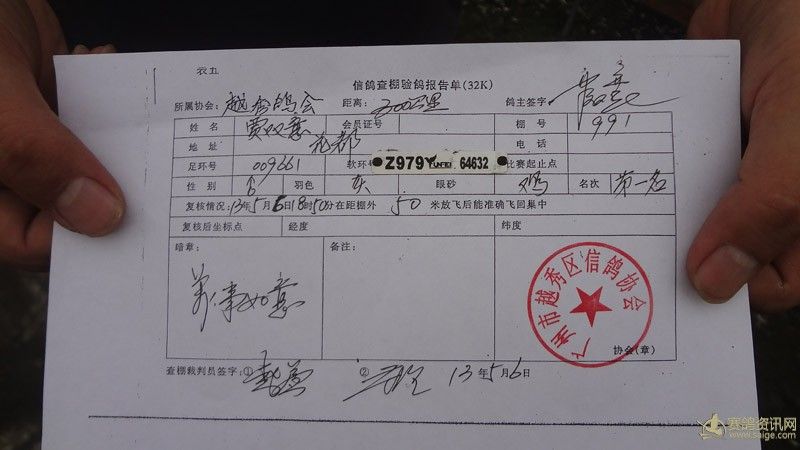 表五
信鸽查棚验鸽报告单(32K)
所属协会: 越秀鸽会 距离: 300公里 鸽主签字:
姓名 贾双意 会员证号 棚号 991
地址 花都 电话
足环号 009661 软环号 Z979 64632 比赛起止点
性别 ♂ 羽色 灰 眼砂 鸡 名次 第一名
复核情况: 13年5月6日18时50分在距棚外 50 米放飞后能准确飞回集中
复核后坐标点 经度 纬度
暗章: 备注:
万事如意
广州市越秀区信鸽协会
协会(章)
查棚裁判员签字: ① ② 13年5月6日
赛鸽资讯网
www.saige.com